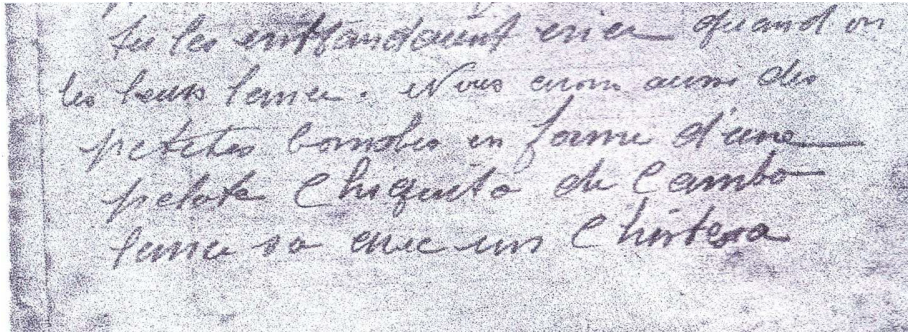 tu les enttandaient crier quand on
les leurs lance. Nous avons aussi des
petites bombes en forme d'une
pelote Chiquito de Cambo
lance sa avec un Chistera